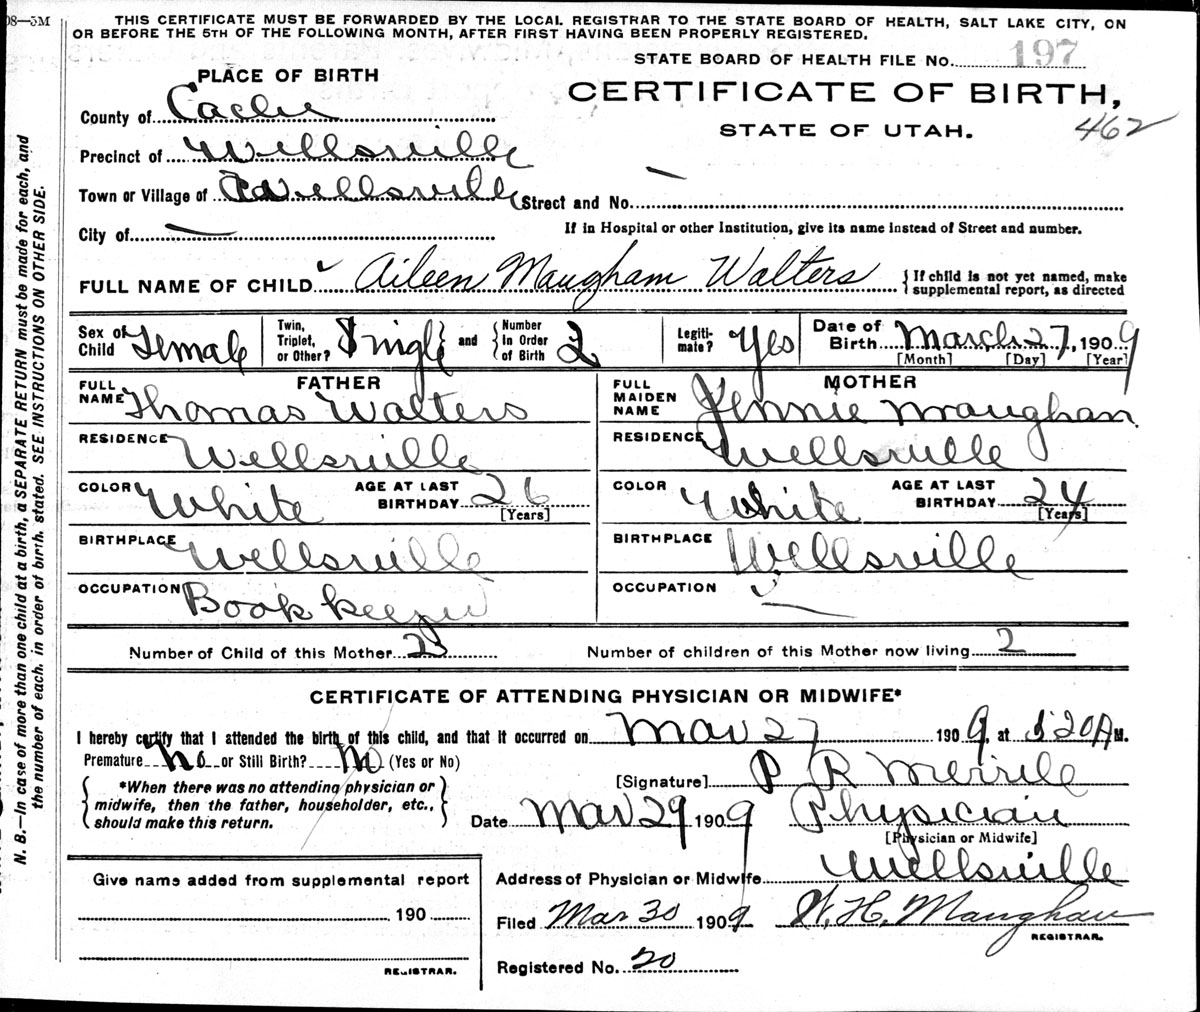 08—5M
THIS CERTIFICATE MUST BE FORWARDED BY THE LOCAL REGISTRAR TO THE STATE BOARD OF HEALTH, SALT LAKE CITY, ON
OR BEFORE THE 5TH OF THE FOLLOWING MONTH, AFTER FIRST HAVING BEEN PROPERLY REGISTERED.
STATE BOARD OF HEALTH FILE No. 197
PLACE OF BIRTH
CERTIFICATE OF BIRTH,
STATE OF UTAH.
462
County of Cache
Precinct of Wellsville
Town or Village of Wellsville
Street and No. —
City of —
If in Hospital or other Institution, give its name instead of Street and number.
FULL NAME OF CHILD Aileen Maugham Walters
{If child is not yet named, make
supplemental report, as directed
Sex of Child Female
Twin, Triplet, or Other? Single and {Number In Order of Birth 2
Legitimate? Yes
Date of Birth March 27, 1909
[Month] [Day] [Year]
FATHER
FULL NAME Thomas Walters
RESIDENCE Wellsville
COLOR White AGE AT LAST BIRTHDAY 26
[Years]
BIRTHPLACE Wellsville
OCCUPATION Book keeper
MOTHER
FULL MAIDEN NAME Jennie Maughan
RESIDENCE Wellsville
COLOR White AGE AT LAST BIRTHDAY 24
[Years]
BIRTHPLACE Wellsville
OCCUPATION —
Number of Child of this Mother 2
Number of children of this Mother now living 2
CERTIFICATE OF ATTENDING PHYSICIAN OR MIDWIFE*
I hereby certify that I attended the birth of this child, and that it occurred on Mar 27 1909, at 520 A M.
Premature No or Still Birth? No (Yes or No)
{*When there was no attending physician or
midwife, then the father, householder, etc.,
should make this return.}
[Signature] P R Merrile
Date Mar 29 1909 Physician
[Physician or Midwife]
Address of Physician or Midwife Wellsville
Filed Mar 30 1909 W. H. Maughan
REGISTRAR.
Registered No. 20
Give name added from supplemental report
190
REGISTRAR.
N. B.—In case of more than one child at a birth, a SEPARATE RETURN must be made for each, and
the number of each, in order of birth, stated. SEE INSTRUCTIONS ON OTHER SIDE.